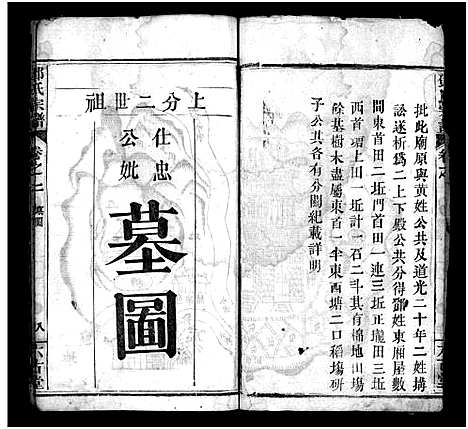 批此廟原與黃姓公共及道光二十年二姓搆
訟遂析為二上下殿公共分得鄧姓東廂屋數
間東首田二坵門首田一連三坵正壠田三坵
西首壋上田一坵計一石二斗其有棉地山塲
餘基樹木盡屬東首一半東西塘二口稻塲硏
子公共各有分關紀載詳明
上分二世祖
仕忠
公妣
墓圖
鄧氏宗譜
卷之二
墓圖
八